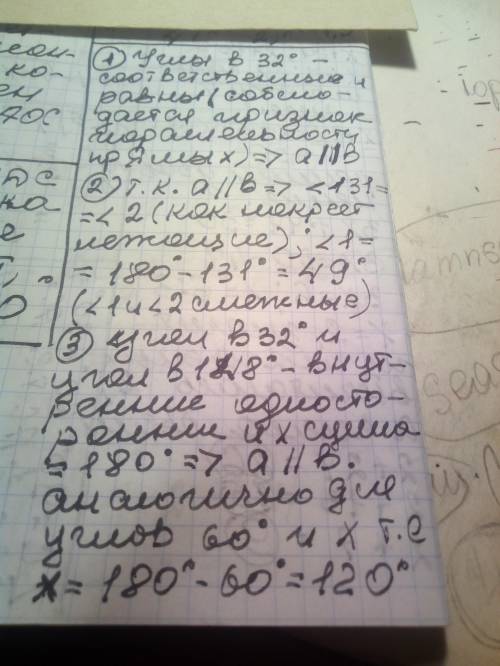 ① Углы в 32° –
соответственные и
равны (соблю-
дается признак
параллельности
прямых) => a||b
② Т.к. a||b => <131=
=<2 (как накрест
лежащие); <1=
=180°-131°=49°
(<1 и <2 смежные)
③ Угол в 32° и
угол в 148° - внут-
ренние односто-
ронние их сумма
=180° => a||b.
аналогично для
углов 60° и x т.е
x=180°-60°=120°